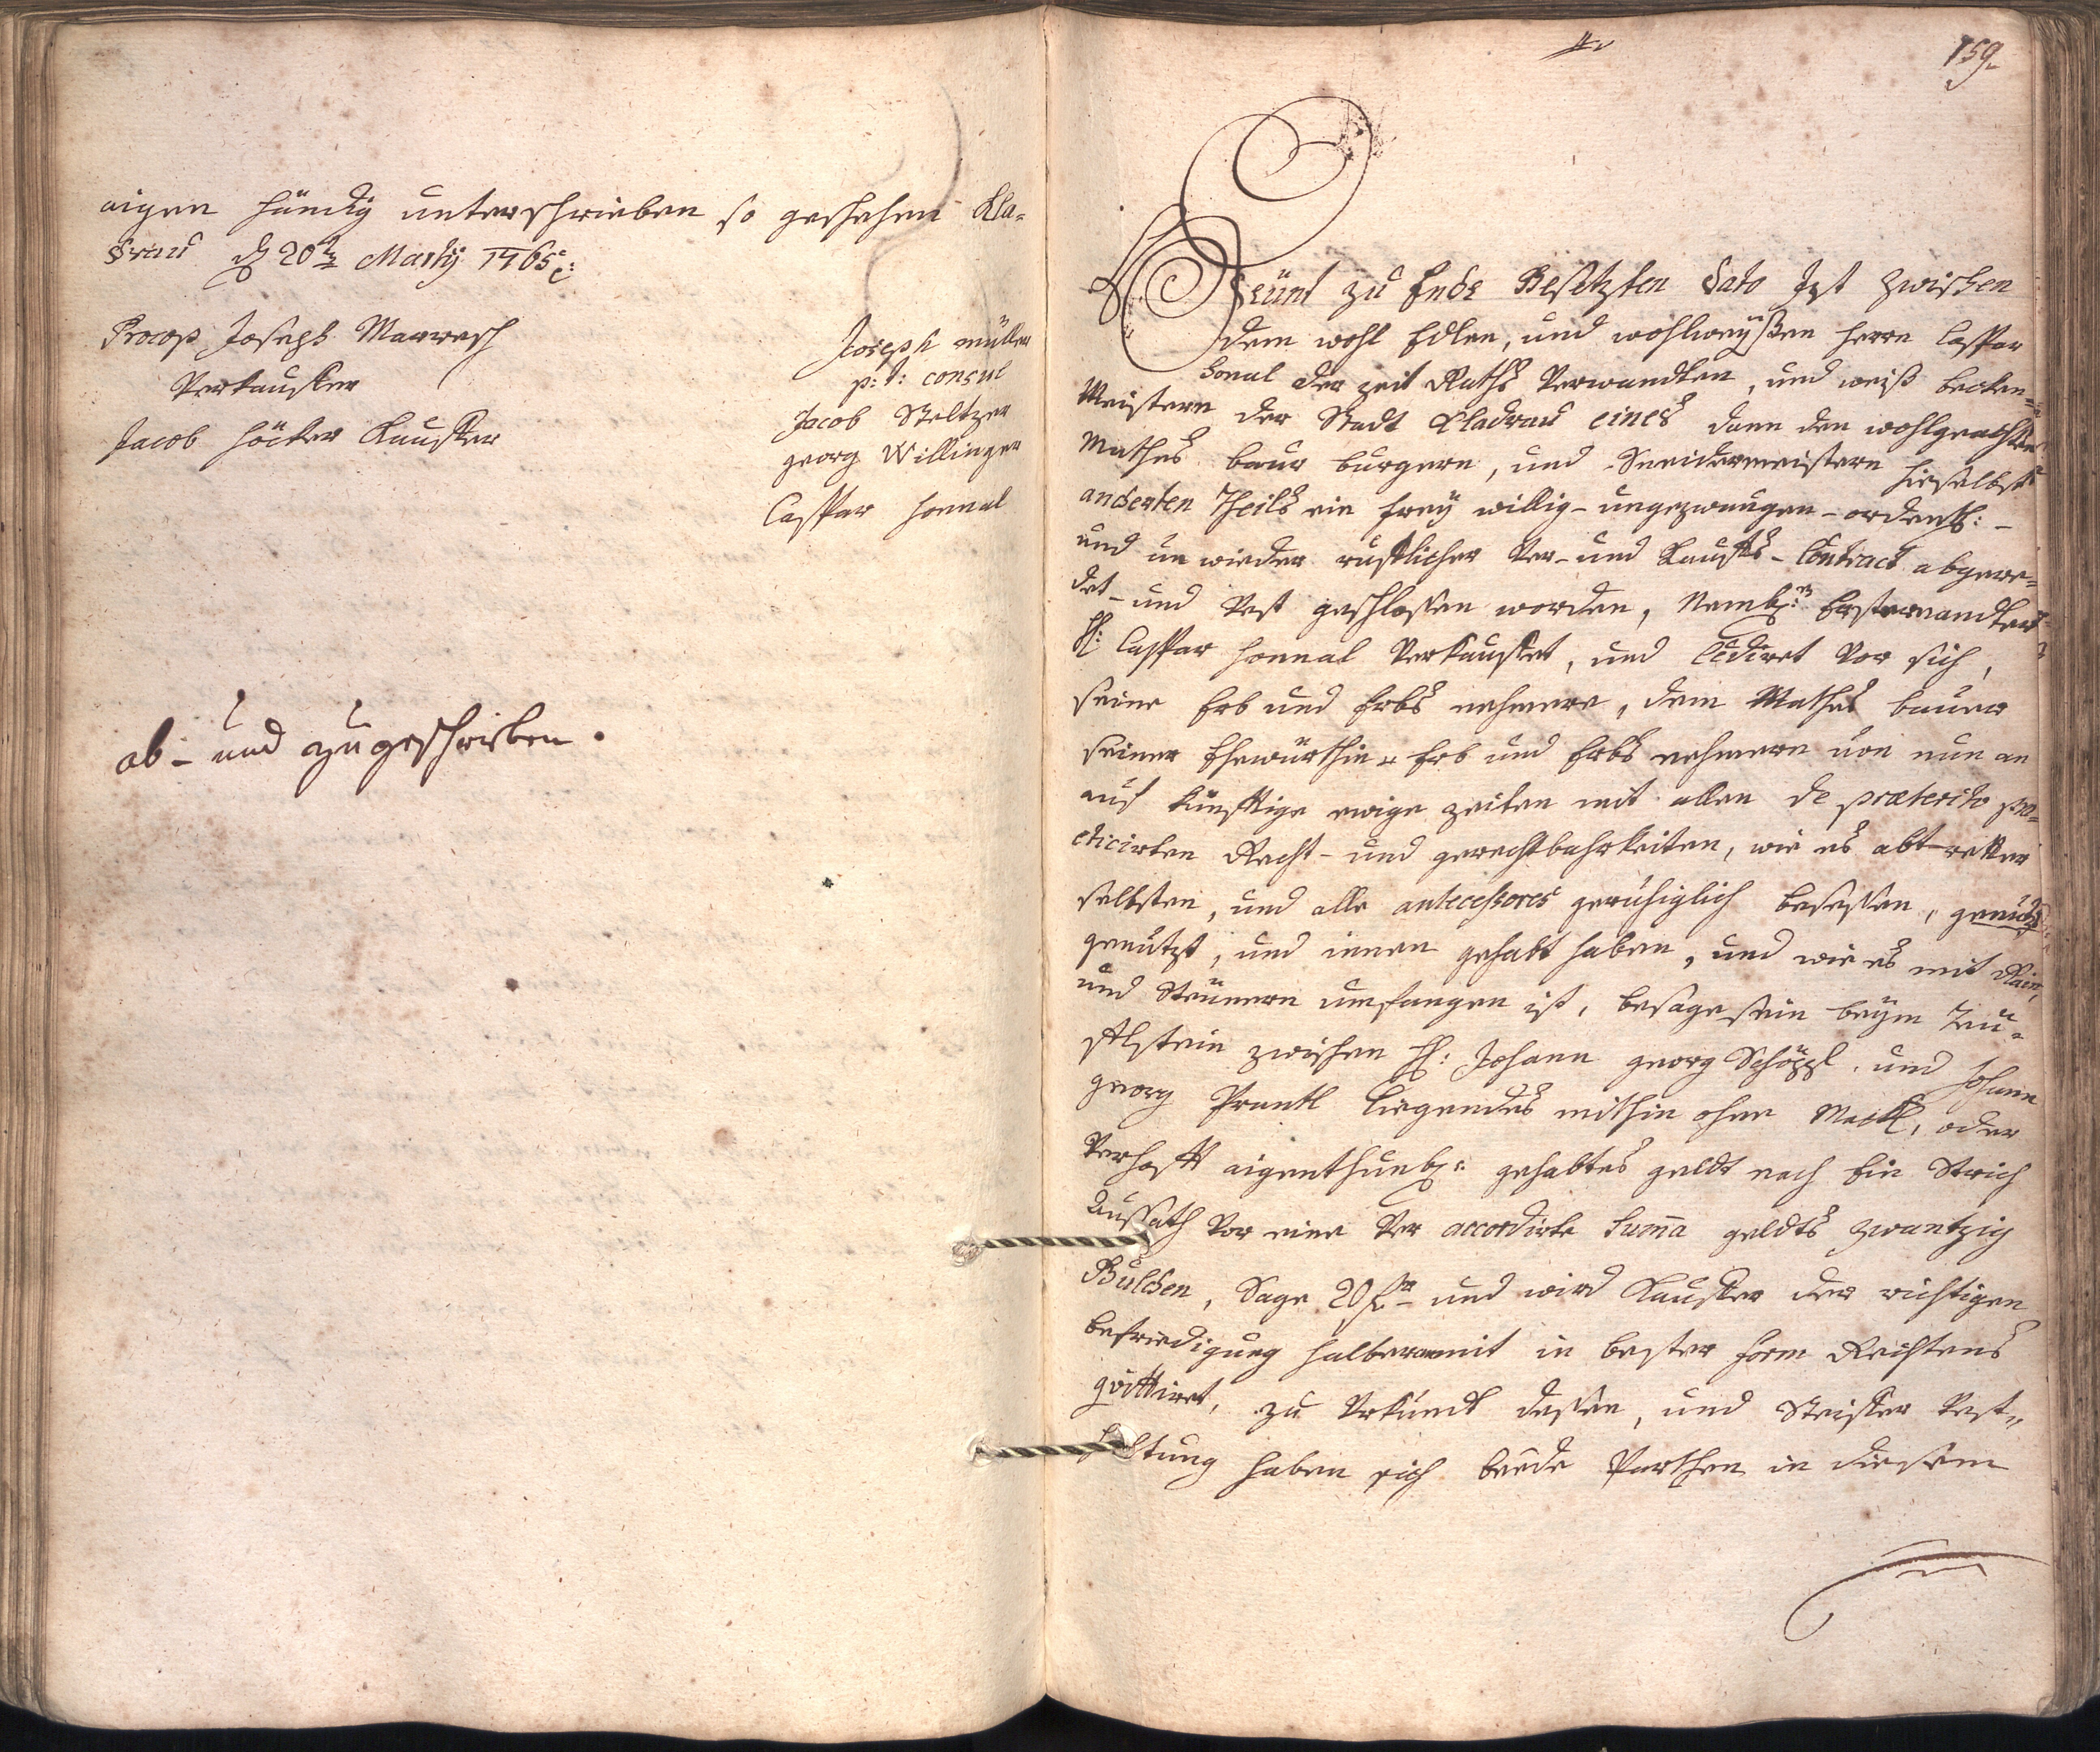 aigen händig unterschrieben so geschehen Kla-
drau d 20t Martÿ 1765
Procop Joseph Marwesch
Verkauffer
Jacob Höcker Kauffer
Joseph müller
p: t: consul
Jacob Steltzer
georg Willinger
Caspar Honnal
ab- und zugeschrieben.
159
Heünt zu Ende Gesetzten dato Ist zwischen
dem wohl Edlen, und wohlweÿßen herrn Caspar
Honal der zeit Raths Verwandten, und weiß becken-
Meistern der Stadt Kladrau eines dann den wohlgeachten
Mathes baur burgern, und Sneidermeistern hieselbst
anderten Theils ein freÿ willig- ungezwungen- ordentl:-
und un wieder rufflicher Ver- und Kauffs- Contract abgere-
det- und Vest geschlossen worden, Nembl: Ersterwandter
H: Caspar Honnal Verkauffet, und Cediret Vor sich,
seine Erb und Erbs nehmere, dem Mathes bauer
seiner Ehewürthin Erb und Erbs nehmern von nun an
auf künfftige ewige zeiten mit allen de præterito pra-
cticirten Recht- und gerechtbahrkeiten, wie es abtretter
selbsten, und alle antecessores geruhiglich besessen, genutzt
genutzt, und innen gehabt haben, und wie es mit Rain,
und Steünern umfangen ist, besage sein beÿm Teü-
flstein zwischen H: Johann georg Schöppl, und Johann
georg Prantl Liegendes mithin ohne Meckl, oder
Verhafft aigenthumbl: gehabtes feldt nach Ein Strich
Aussath Vor eine Ver accordirte Suma geldts zwantzig
Gulden, Sage 20 f und wird Kauffer der richtigen
befriedigung halber anmit in bester form Rechtens
quittiret, zu Urkundt dessen, und Steiffer Vest-
haltung haben sich beede Parthen in diesem